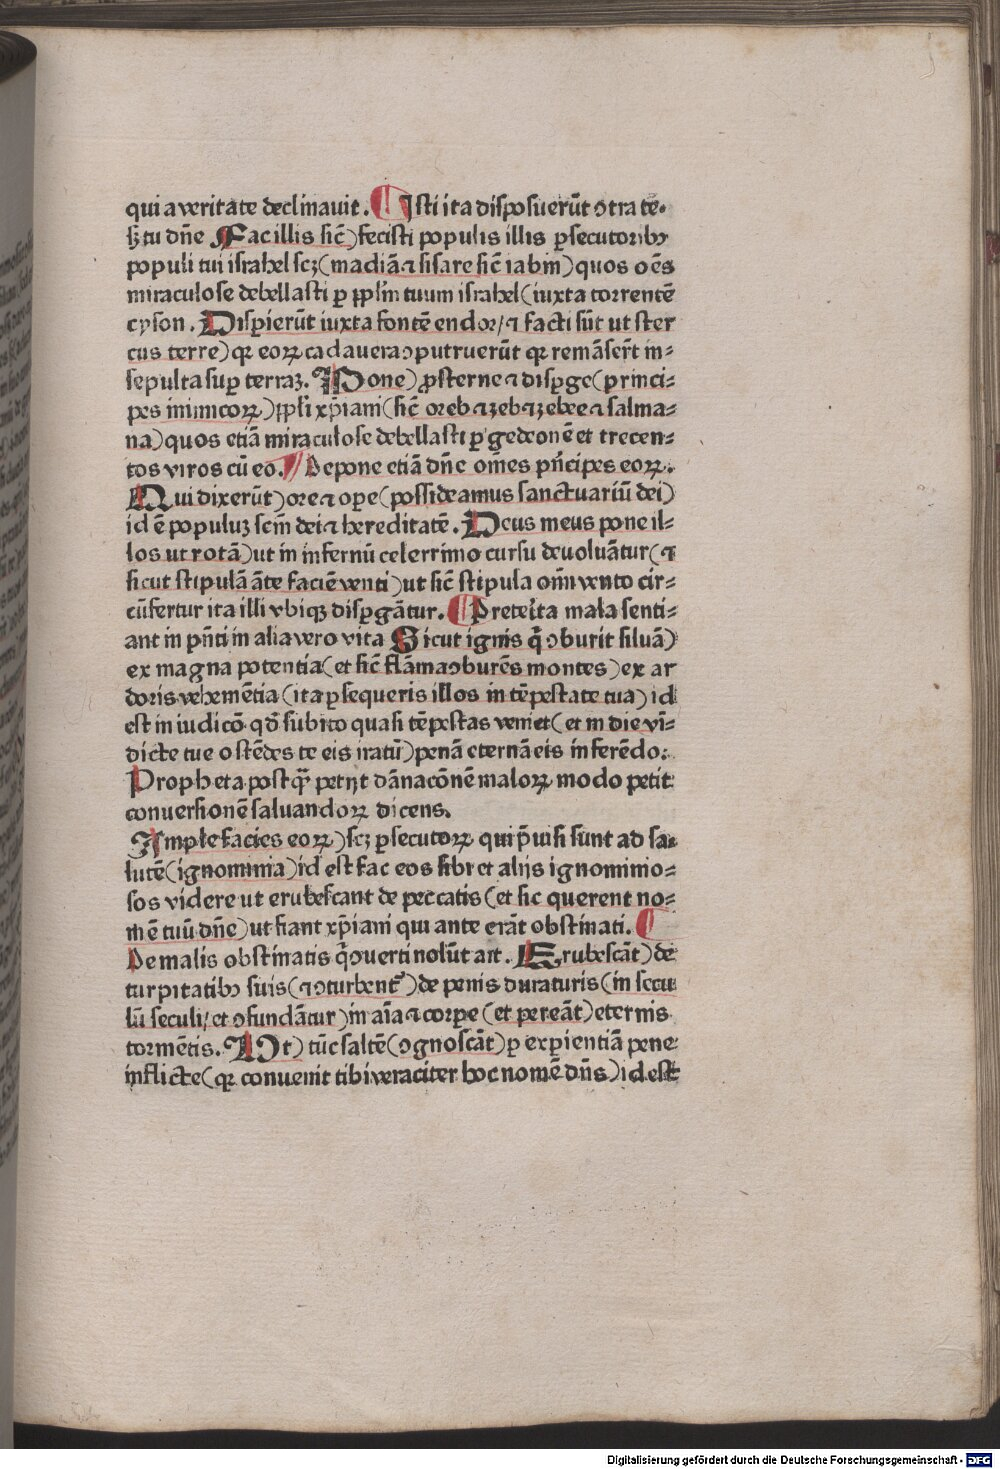 qui a veritate declinauit. ¶ Isti ita disposuerūt ɔtra te.
sꝫ tu dñe Fac illis sic̄) fecisti populis illis ꝑsecutoribꝰ
populi tui israhel scꝫ (madiā ⁊ sisare sic̄ iabin) quos oēs
miraculose debellasti ꝑ pplm̄ tuum israhel (iuxta torrentē
cyson. Disꝑierūt iuxta fontē endor / ⁊ facti sūt ut ster
cus terre) qꝛ eoꝝ cadauera ɔputruerūt qꝛ remāserūt in⸗
sepulta suꝑ terraꝫ. Pone) ꝓsterne ⁊ disꝑge (princi⸗
pes inimicoꝝ) ppli xp̄iani (sic̄ oreb ⁊ zeb ⁊ zebee ⁊ salma⸗
na) quos etiā miraculose debellasti ꝑ gedeonē et trecen⸗
tos viros cū eo. ¶ Depone etiā dñe om̄es pn̄cipes eoꝝ.
Qui dixerūt) ore ⁊ oꝑe (possideamus sanctuariū dei)
id ē populuꝫ scm̄ dei ⁊ hereditatē. Deus meus pone il⸗
los ut rotā) ut in infernū celerrimo cursu deuoluātur (⁊
sicut stipulā āte faciē venti) ut sic̄ stipula om̄i vento cir⸗
cūfertur ita illi vbiqꝫ disꝑgātur. ¶ Preterita mala senti⸗
ant in pn̄ti in alia vero vita Sicut ignis q̄ ɔburit siluā)
ex magna potentia (et sic̄ flāma ɔburēs montes) ex ar
doris vehemētia (ita ꝑsequeris illos in tēpestate tua) id
est in iudicō qd̄ subito quasi tēpestas veniet (et in die vī⸗
dicte tue ostēdes te eis iratū) penā eternā eis inferēdo.
Propheta postq̄ꝫ petijt dānacōnē maloꝝ modo petit
conuersionē saluandoꝝ dicens.
Imple facies eoꝝ) scꝫ ꝑsecutoꝝ qui p̄uisi sunt ad sa⸗
lutē (ignominia) id est fac eos sibi et alijs ignominio⸗
sos videre ut erubescant de peccatis (et sic querent no⸗
mē tuū dñe) ut fiant xp̄iani qui ante erāt obstinati. ¶
De malis obstinatis q̄ ɔuerti nolūt ait. Erubescāt) de
turpitatibꝰ suis (⁊ ɔturbent᷑) de penis duraturis (in secu
lū seculi / et ɔfundātur) in aīa ⁊ corꝑe (et pereāt) eternis
tormētis. Et) tūc saltē (ɔgnoscāt) ꝑ exꝑientiā pene
inflicte (qꝛ conuenit tibi veraciter hoc nomē dn̄s) id est
Digitalisierung gefördert durch die Deutsche Forschungsgemeinschaft - DFG